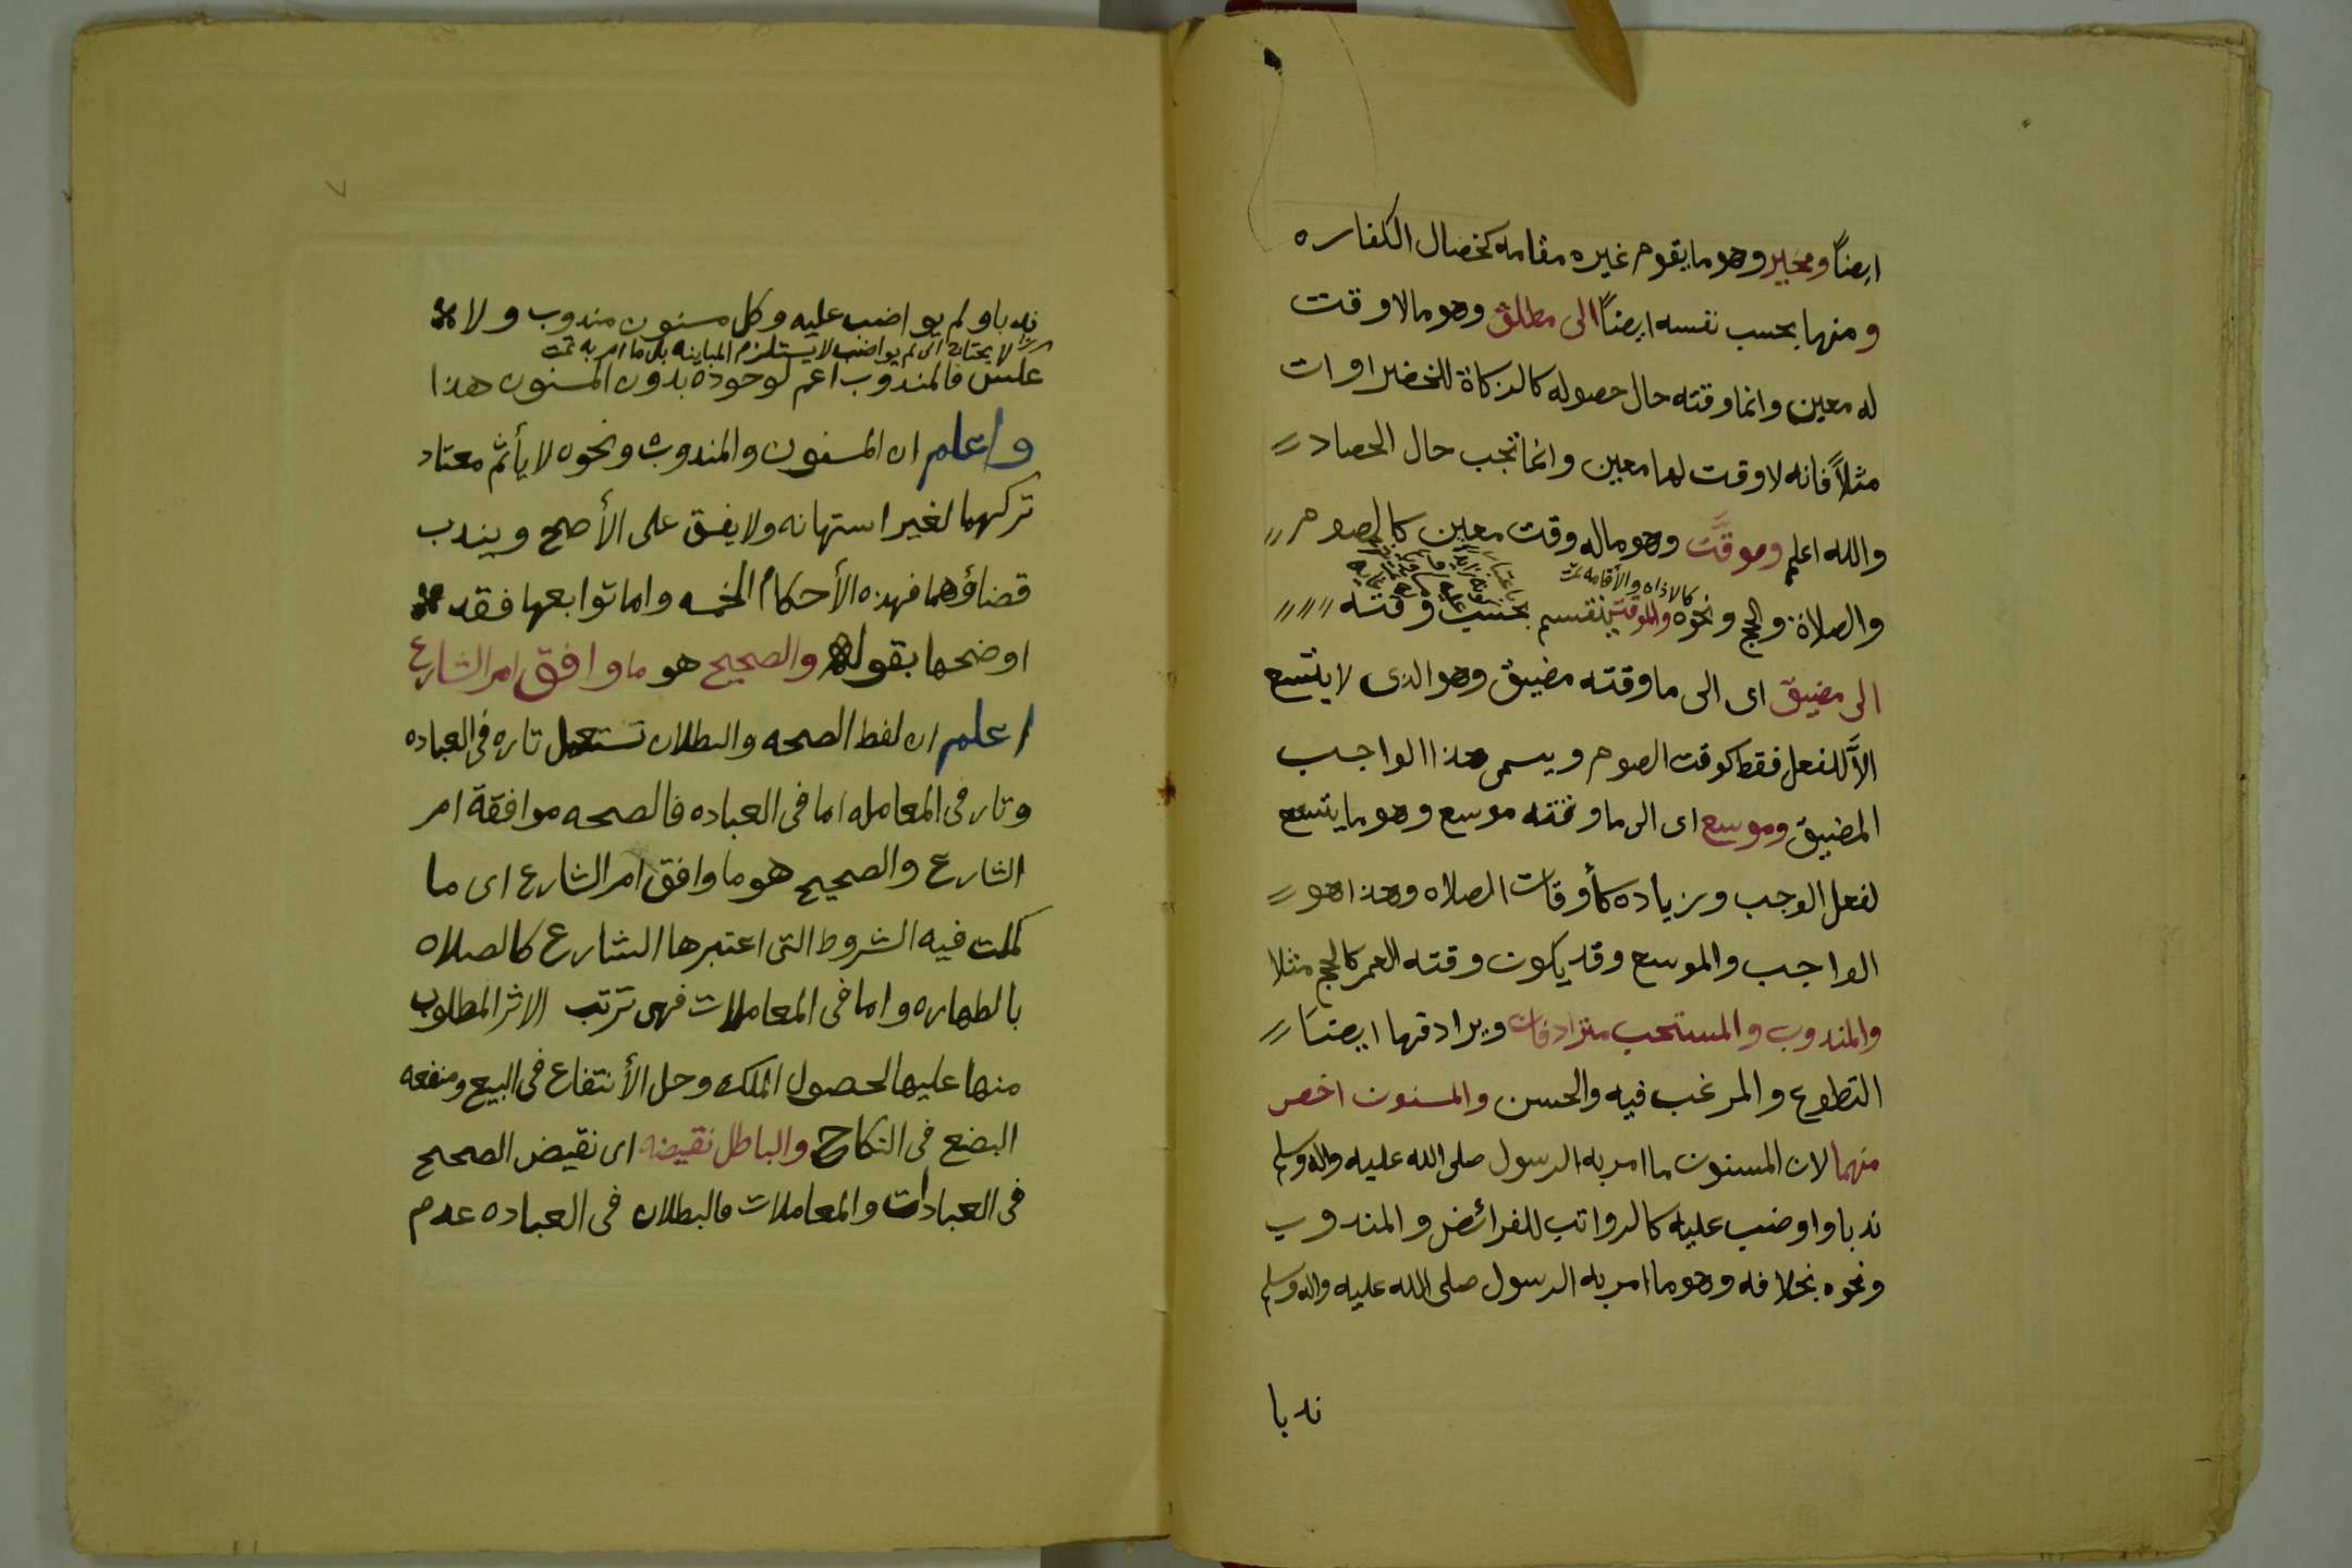 ايضاً ومخير وهو ما يقوم غيره مقامه كخصال الكفاره
ومنها بحسب نفسه ايضاً الى مطلق وهو مالا وقت
له معين وانما وقته حال حصوله كالزكاة للخضراوات
مثلاً فانه لا وقت لها معين وانما تجب حال الحصاد
والله اعلم وموقَّت وهو ماله وقت معين كالصوم
كالاذان والأقامه تمت
والصلاة والحج ونحوه والموقت ينقسم بحسب وقته
الى مضيق اى الى ما وقته مضيق وهو الذى لا يتسع
الاَّ للفعل فقط كوقت الصوم ويسمى هذا الواجب
المضيق وموسع اى الى ما وقته موسع وهو ما يتسع
لفعل الوجب وزياده كأوقات الصلاه وهذا هو
الواجب والموسع وقد يكون وقته العمر كالحج مثلا
والمندوب والمستحب مترادفان ويرادفها ايضاً
التطوع والمرغب فيه والحسن والمسنون اخص
منهما لان المسنون ما امر به الرسول صلى الله عليه واله وسلم
ندبا واوضب عليه كالرواتب للفرائض والمندوب
ونحوه بخلافه وهو ما امر به الرسول صلى الله عليه واله وسلم
ندبا
٧
ندبا ولم يواضب عليه وكل مسنون مندوب ولا
لم يواضب لا يستلزم المباينه بل ما امر به تمت
عكس فالمندوب اعم لوجوده بدون المسنون هذا
واعلم ان المسنون والمندوب ونحوه لا يأثم معتاد
تركهما لغير استهانه ولا يفسق على الأصح ويندب
قضاؤهما فهذه الأحكام الخمسه واما توابعها فقد
اوضحها بقوله والصحيح هو ما وافق امر الشارع
اعلم ان لفظ الصحه والبطلان تستعمل تاره فى العباده
وتار فى المعامله اما فى العباده فالصحه موافقة امر
الشارع والصحيح هو ما وافق امر الشارع اى ما
كملت فيه الشروط التى اعتبرها الشارع كالصلاه
بالطهاره واما فى المعاملات فهى ترتب الاثر المطلوب
منها عليها لحصول الملك وحل الأنتفاع فى البيع ومنفعه
البضع فى النكاح والباطل نقيضه اى نقيض الصحيح
فى العبادات والمعاملات فالبطلان فى العباده عدم